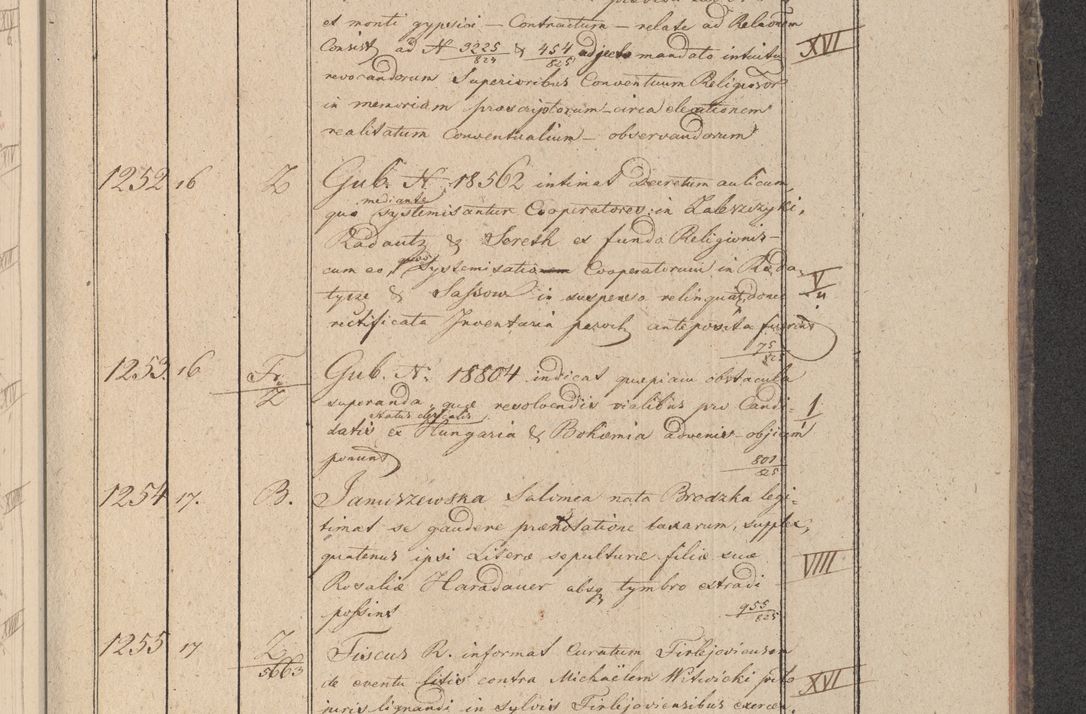 et monti gypsici — Contractum — relate ad Relaõnem
Consist ad N 3225/824 & 454/825 adjecto mandato intuitu XVI
revocandorum Superioribus Conventuum Religiosor
in memoriam praescriptorum circa elocationem
realitatum Conventualium — observandorum
1252 16 Z Gub. N. 18562 intimat Decretum aulicum,
mediante
quo systemisantur Cooperatores in Zaleszczyki,
Radautz & Sereth ex fundo Religionis
cum eo, quod Systemisatio Cooperatorum in Rada- V
tycze & Sassow in suspenso relinquat, donec
rectificata Inventaria paroch anteposita fuerint
75/825
1253. 16 Fr./Z Gub. N. 18804 indicat quaepiam obstacula
superanda, quae resolvendis vialibus pro Candi- 1
status clericalis
datis ex Hungaria & Bohemia advenis objici
possunt 801/825
1254 17. B. Januszewska Salomea nata Brodzka legi-
timat se gaudere praenotatione taxarum, supplex,
quatenus ipsi Literae sepulturae filiae suae VIII
Rosaliae Haradauer absq tymbro extradi
possint 955/825
1255 17 Z/5663 Fiscus R. informat Curatum Firlejoviensem
de eventu litis contra Michaëlem Witwicki pcto XVI
juris lignandi in Sylvis Firlejoviensibus exercen.